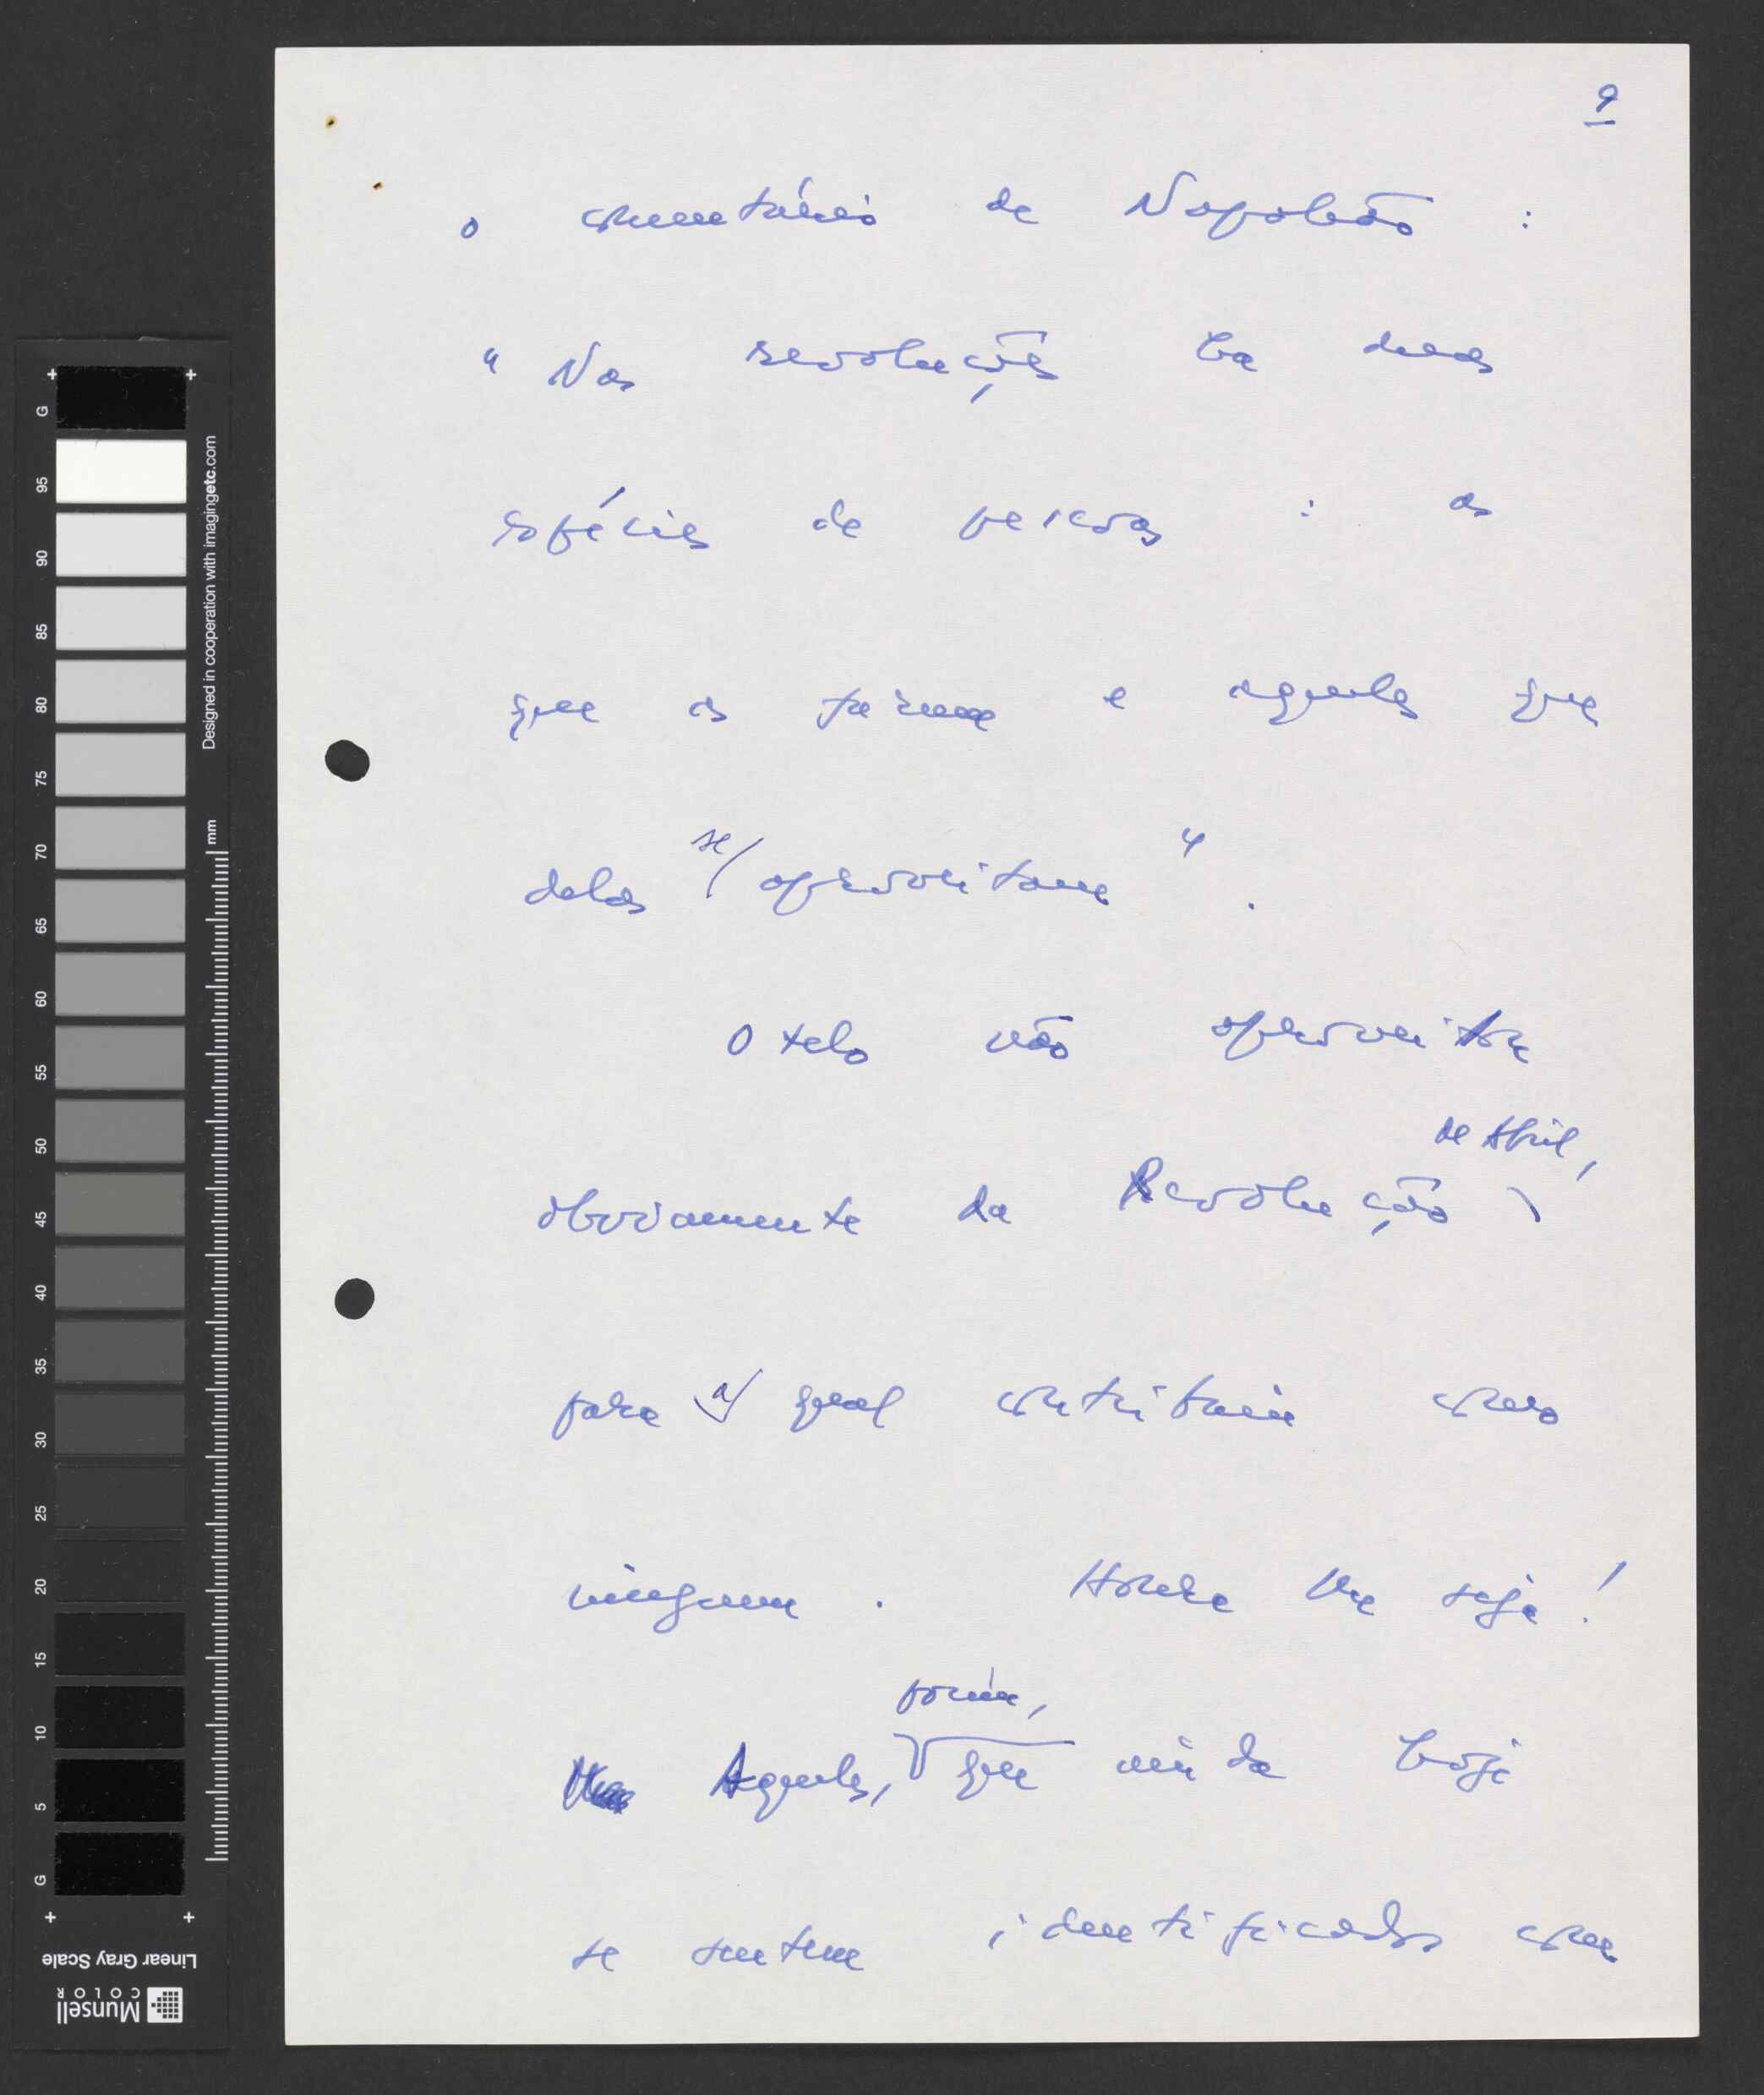 9
o comentário de Napoleão :
" Nas revoluções há duas
espécies de pessoas : as
que as fazem e aqueles que
delas se/ aproveitam " .
Otelo não aproveitou
de Abril,
obviamente da Revolução
para a/ qual contribuiu como
ninguem . Honra lhe seja !
porém,
Aqueles, que ainda hoje
se sentem identificados com
Designed in cooperation with imagingetc.com
mm
G
95
90
85
80
75
70
65
60
55
50
45
40
35
30
25
20
15
10
5
G
Linear Gray Scale
Munsell
COLOR